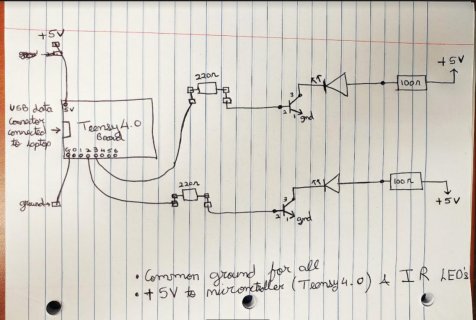 +5V
+5V
220Ω
100Ω
3
2
1
gnd
USB data
connector
connected
to laptop
5V
Teensy 4.0
Board
G 0 1 2 3 4 5 6
220Ω
100Ω
3
2
1
gnd
+5V
ground
• Common ground for all
• +5V to microntroller (Teensy 4.0) & IR LEO's